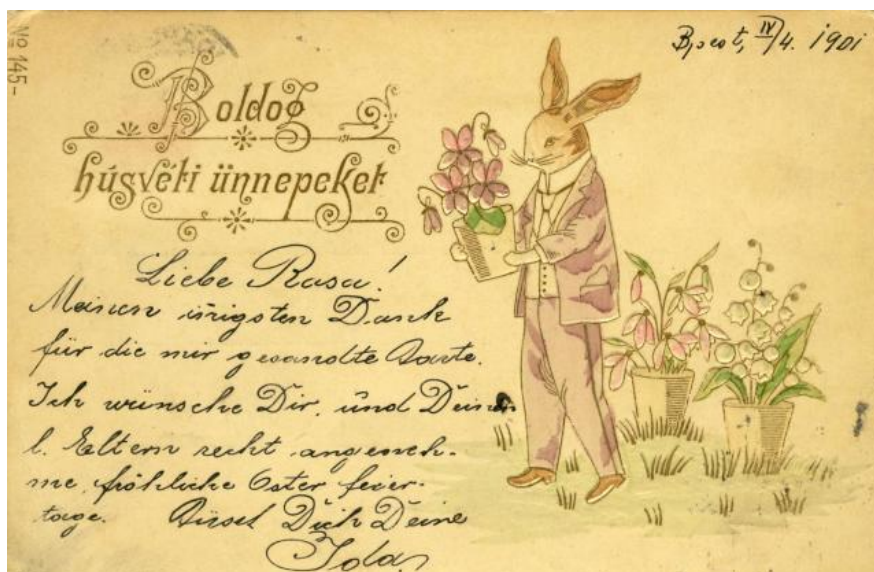 No 145-
Bpest, IV/4. 1901
Boldog
húsvéti ünnepeket
Liebe Rosa!
Meinen inigsten Dank
für die mir gesandte Karte.
Ich wünsche Dir, und Deinen
l. Eltern recht angeneh-
me, fröhliche Oster feier-
tage. Küsst Dich Deine
Ida